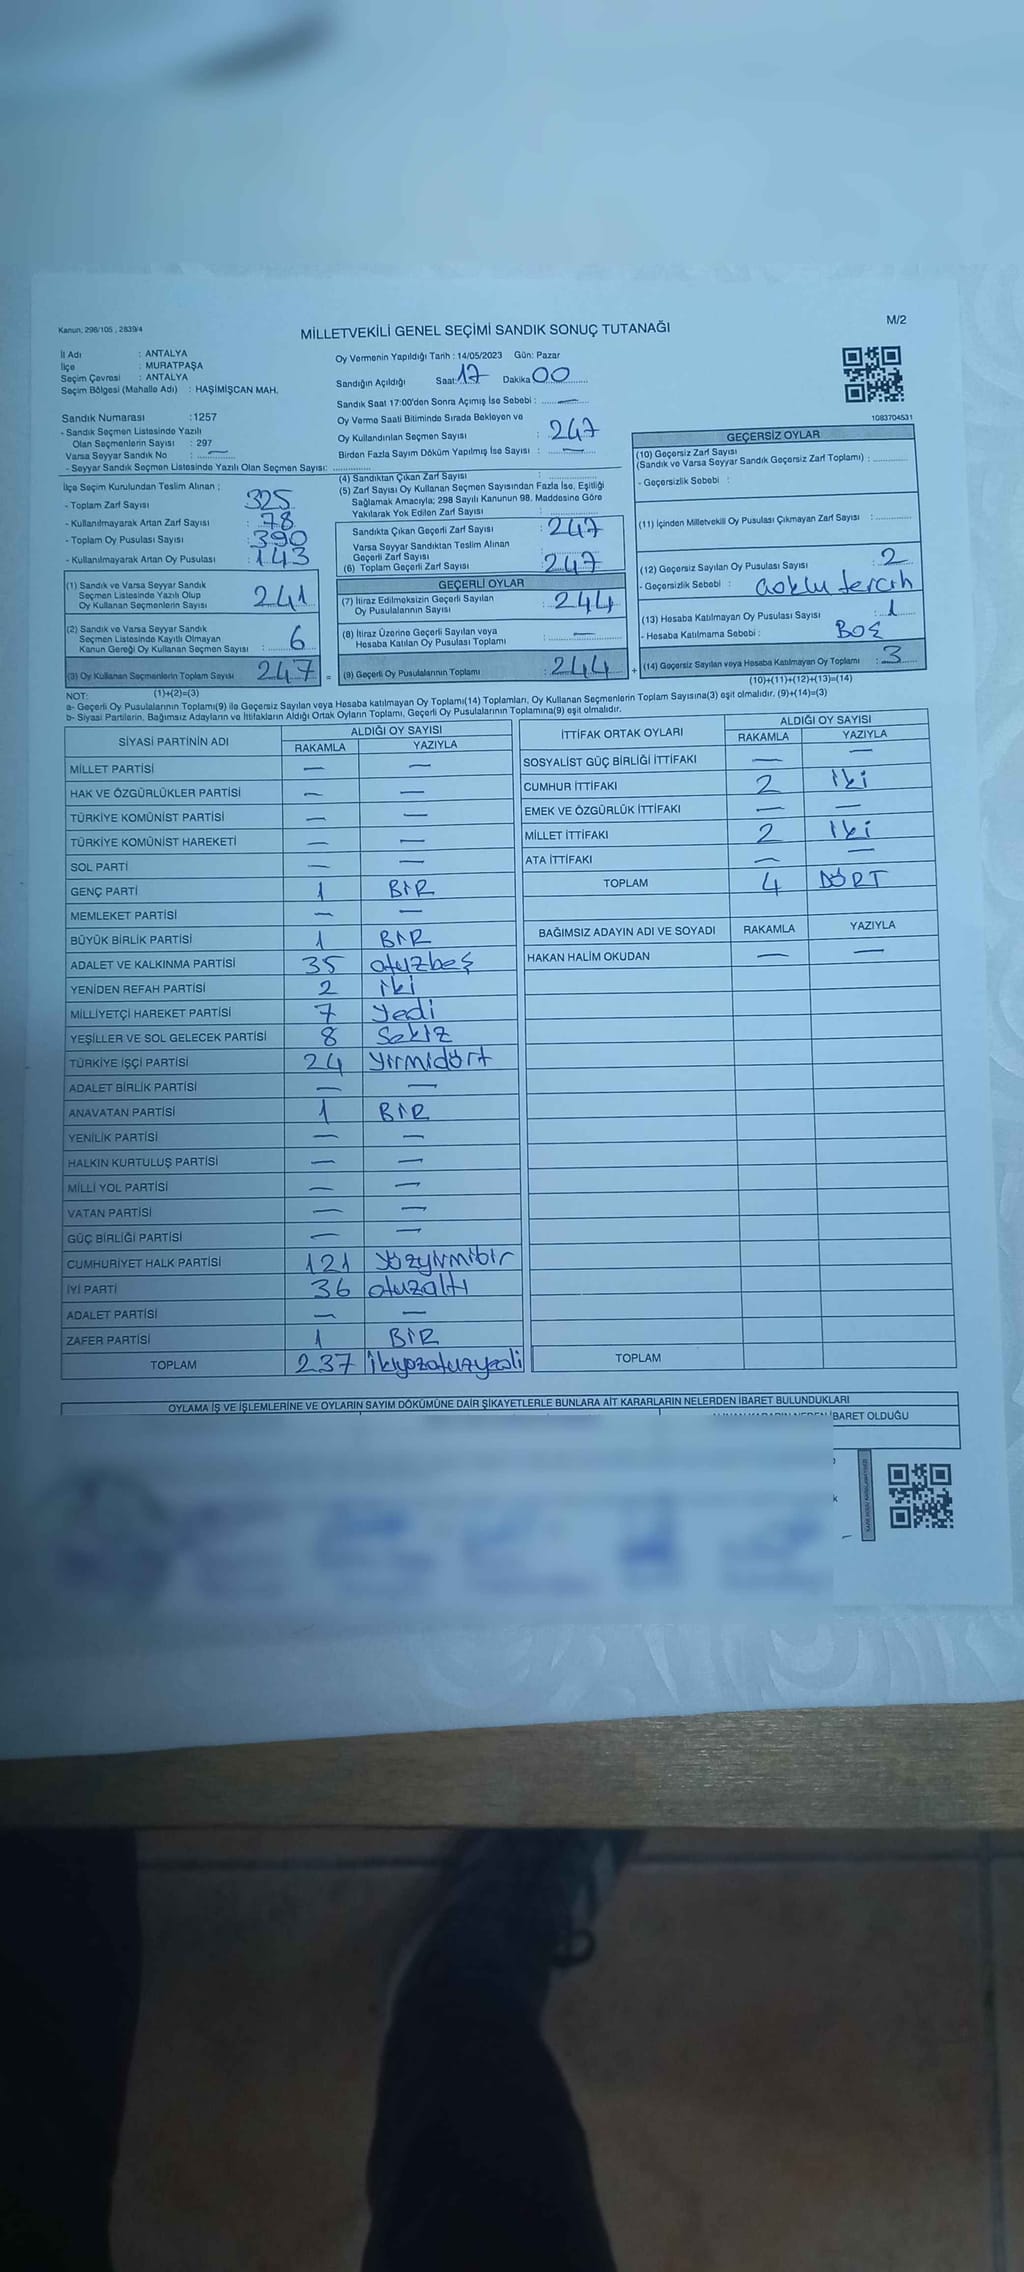 Kanun: 298/105 , 2839/4
M/2
MİLLETVEKİLİ GENEL SEÇİMİ SANDIK SONUÇ TUTANAĞI
İl Adı : ANTALYA
İlçe : MURATPAŞA
Seçim Çevresi : ANTALYA
Seçim Bölgesi (Mahalle Adı) : HAŞİMİŞCAN MAH.
Sandık Numarası :1257
- Sandık Seçmen Listesinde Yazılı
Olan Seçmenlerin Sayısı : 297
Varsa Seyyar Sandık No : —
- Seyyar Sandık Seçmen Listesinde Yazılı Olan Seçmen Sayısı:
Oy Vermenin Yapıldığı Tarih : 14/05/2023 Gün: Pazar
Sandığın Açıldığı Saat: 17 Dakika 00
Sandık Saat 17:00'den Sonra Açımış İse Sebebi : —
Oy Verme Saati Bitiminde Sırada Bekleyen ve
Oy Kullandırılan Seçmen Sayısı : 247
Birden Fazla Sayım Döküm Yapılmış İse Sayısı : —
1083704531
İlçe Seçim Kurulundan Teslim Alınan ;
- Toplam Zarf Sayısı : 325
- Kullanılmayarak Artan Zarf Sayısı : 78
- Toplam Oy Pusulası Sayısı : 390
- Kullanılmayarak Artan Oy Pusulası : 143
(1) Sandık ve Varsa Seyyar Sandık
Seçmen Listesinde Yazılı Olup
Oy Kullanan Seçmenlerin Sayısı 241
(2) Sandık ve Varsa Seyyar Sandık
Seçmen Listesinde Kayıtlı Olmayan
Kanun Gereği Oy Kullanan Seçmen Sayısı : 6
(3) Oy Kullanan Seçmenlerin Toplam Sayısı 247 =
(4) Sandıktan Çıkan Zarf Sayısı :
(5) Zarf Sayısı Oy Kullanan Seçmen Sayısından Fazla İse, Eşitliği
Sağlamak Amacıyla; 298 Sayılı Kanunun 98. Maddesine Göre
Yakılarak Yok Edilen Zarf Sayısı :
Sandıkta Çıkan Geçerli Zarf Sayısı : 247
Varsa Seyyar Sandıktan Teslim Alınan
Geçerli Zarf Sayısı :
(6) Toplam Geçerli Zarf Sayısı : 247
GEÇERLİ OYLAR
(7) İtiraz Edilmeksizin Geçerli Sayılan
Oy Pusulalarının Sayısı : 244
(8) İtiraz Üzerine Geçerli Sayılan veya
Hesaba Katılan Oy Pusulası Toplamı : —
(9) Geçerli Oy Pusulalarının Toplamı : 244 +
GEÇERSİZ OYLAR
(10) Geçersiz Zarf Sayısı
(Sandık ve Varsa Seyyar Sandık Geçersiz Zarf Toplamı) :
- Geçersizlik Sebebi :
(11) İçinden Milletvekili Oy Pusulası Çıkmayan Zarf Sayısı :
(12) Geçersiz Sayılan Oy Pusulası Sayısı : 2
- Geçersizlik Sebebi : Çoklu tercih
(13) Hesaba Katılmayan Oy Pusulası Sayısı : 1
- Hesaba Katılmama Sebebi : BOŞ
(14) Geçersiz Sayılan veya Hesaba Katılmayan Oy Toplamı : 3
(10)+(11)+(12)+(13)=(14)
NOT: (1)+(2)=(3)
a- Geçerli Oy Pusulalarının Toplamı(9) ile Geçersiz Sayılan veya Hesaba katılmayan Oy Toplamı(14) Toplamları, Oy Kullanan Seçmenlerin Toplam Sayısına(3) eşit olmalıdır. (9)+(14)=(3)
b- Siyasi Partilerin, Bağımsız Adayların ve İttifakların Aldığı Ortak Oyların Toplamı, Geçerli Oy Pusulalarının Toplamına(9) eşit olmalıdır.
SİYASİ PARTİNİN ADI ALDIĞI OY SAYISI
RAKAMLA YAZIYLA
MİLLET PARTİSİ — —
HAK VE ÖZGÜRLÜKLER PARTİSİ — —
TÜRKİYE KOMÜNİST PARTİSİ — —
TÜRKİYE KOMÜNİST HAREKETİ — —
SOL PARTİ — —
GENÇ PARTİ 1 BİR
MEMLEKET PARTİSİ — —
BÜYÜK BİRLİK PARTİSİ 1 BİR
ADALET VE KALKINMA PARTİSİ 35 otuzbeş
YENİDEN REFAH PARTİSİ 2 iki
MİLLİYETÇİ HAREKET PARTİSİ 7 Yedi
YEŞİLLER VE SOL GELECEK PARTİSİ 8 Sekiz
TÜRKİYE İŞÇİ PARTİSİ 24 yirmidört
ADALET BİRLİK PARTİSİ — —
ANAVATAN PARTİSİ 1 BİR
YENİLİK PARTİSİ — —
HALKIN KURTULUŞ PARTİSİ — —
MİLLİ YOL PARTİSİ — —
VATAN PARTİSİ — —
GÜÇ BİRLİĞİ PARTİSİ — —
CUMHURİYET HALK PARTİSİ 121 yüzyirmibir
İYİ PARTİ 36 otuzaltı
ADALET PARTİSİ — —
ZAFER PARTİSİ 1 BİR
TOPLAM 237 ikiyüzotuzyedi
İTTİFAK ORTAK OYLARI ALDIĞI OY SAYISI
RAKAMLA YAZIYLA
SOSYALİST GÜÇ BİRLİĞİ İTTİFAKI — —
CUMHUR İTTİFAKI 2 iki
EMEK VE ÖZGÜRLÜK İTTİFAKI — —
MİLLET İTTİFAKI 2 iki
ATA İTTİFAKI — —
TOPLAM 4 DÖRT
BAĞIMSIZ ADAYIN ADI VE SOYADI RAKAMLA YAZIYLA
HAKAN HALİM OKUDAN — —
TOPLAM
OYLAMA İŞ VE İŞLEMLERİNE VE OYLARIN SAYIM DÖKÜMÜNE DAİR ŞİKAYETLERLE BUNLARA AİT KARARLARIN NELERDEN İBARET BULUNDUKLARI
İBARET OLDUĞU